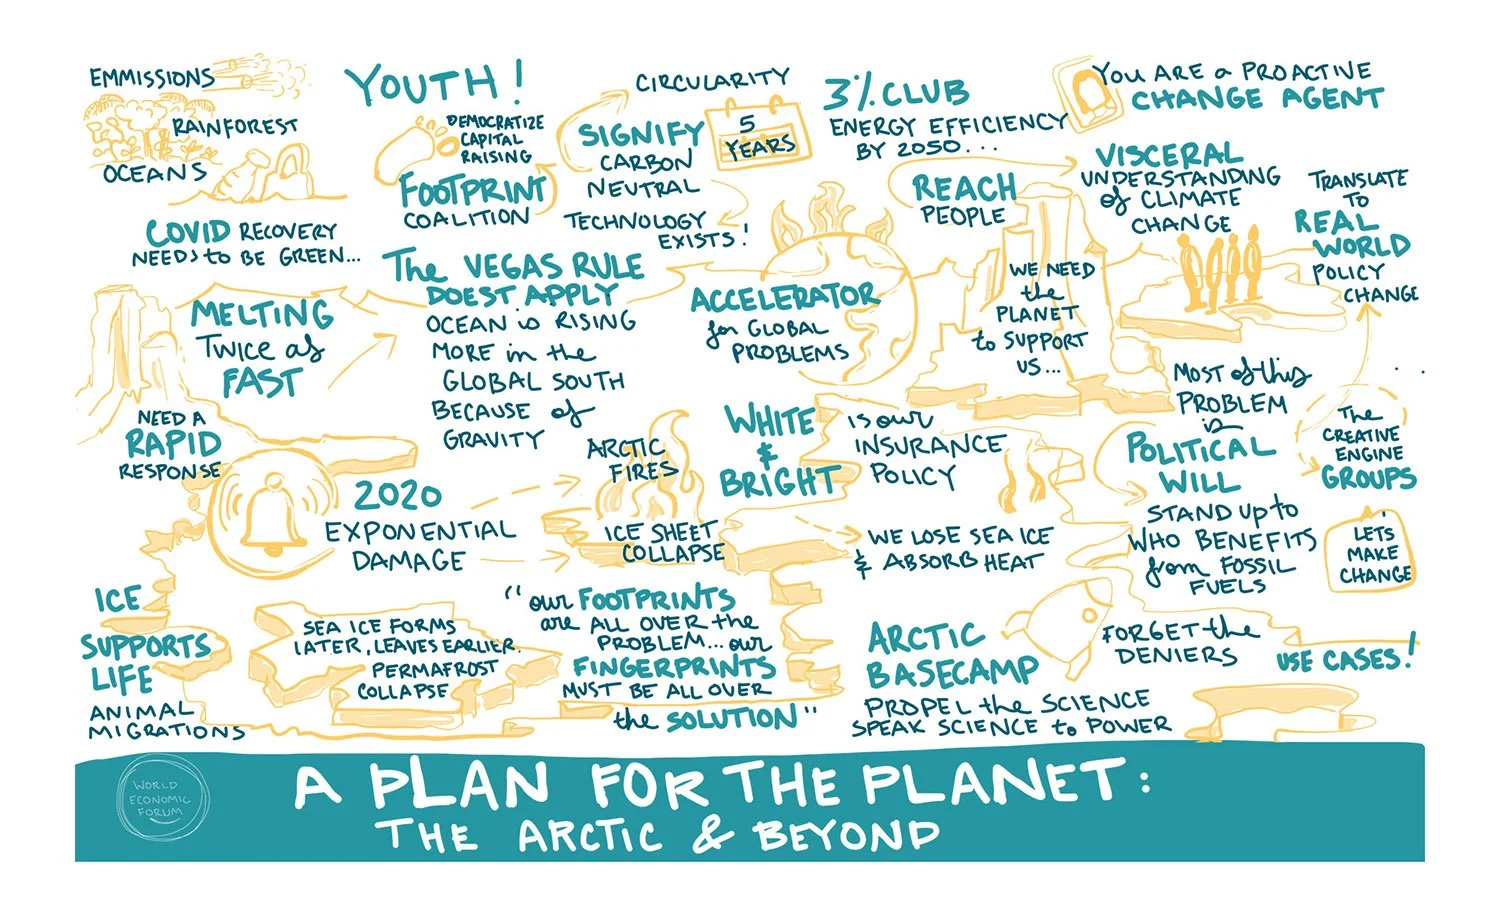 EMMISSIONS
RAINFOREST
OCEANS
COVID RECOVERY
NEEDS to BE GREEN...
YOUTH!
DEMOCRATIZE
CAPITAL
RAISING
FOOTPRINT
COALITION
CIRCULARITY
SIGNIFY
CARBON
NEUTRAL
5
YEARS
TECHNOLOGY
EXISTS!
3% CLUB
ENERGY EFFICIENCY
BY 2050...
REACH
PEOPLE
YOU ARE a PROACTIVE
CHANGE AGENT
VISCERAL
UNDERSTANDING
of CLIMATE
CHANGE
TRANSLATE
TO
REAL
WORLD
POLICY
CHANGE
MELTING
TWICE as
FAST
The VEGAS RULE
DOEST APPLY
OCEAN is RISING
MORE in the
GLOBAL SOUTH
BECAUSE of
GRAVITY
ACCELERATOR
for GLOBAL
PROBLEMS
WE NEED
the
PLANET
to SUPPORT
US...
NEED A
RAPID
RESPONSE
2020
EXPONENTIAL
DAMAGE
ARCTIC
FIRES
ICE SHEET
COLLAPSE
WHITE
&
BRIGHT
IS our
INSURANCE
POLICY
WE LOSE SEA ICE
& ABSORB HEAT
MOST of this
PROBLEM
is
POLITICAL
WILL
STAND UP to
WHO BENEFITS
from FOSSIL
FUELS
The
CREATIVE
ENGINE
GROUPS
LETS
MAKE
CHANGE
ICE
SUPPORTS
LIFE
ANIMAL
MIGRATIONS
SEA ICE FORMS
LATER, LEAVES EARLIER.
PERMAFROST
COLLAPSE
"our FOOTPRINTS
are ALL OVER the
PROBLEM... our
FINGERPRINTS
MUST BE ALL OVER
the SOLUTION"
ARCTIC
BASECAMP
PROPEL the SCIENCE
SPEAK SCIENCE to POWER
FORGET the
DENIERS
USE CASES!
WORLD
ECONOMIC
FORUM
A PLAN FOR THE PLANET:
THE ARCTIC & BEYOND